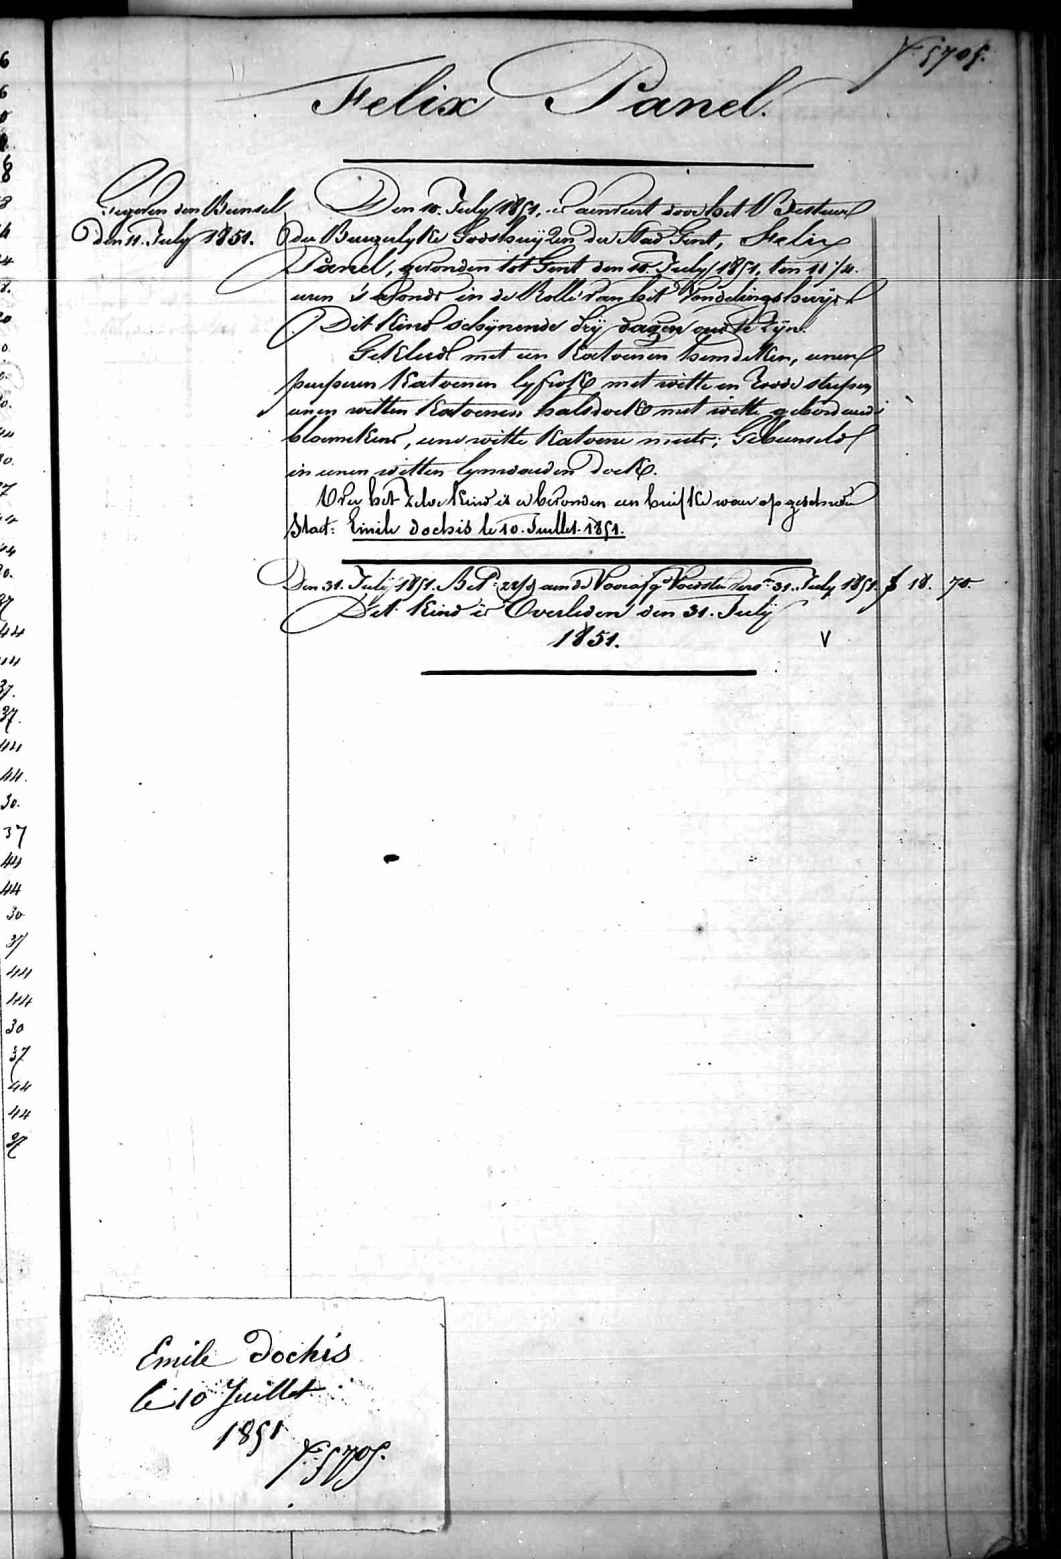 F. 5705.
Felix Panel.
Gegeven den Bunsel
den 11. July 1851.
Den 10. July 1851, is aenveert door het Bestuur
der Burgerlyke Godshuijzen der Stad Gent, Felix
Panel, gevonden tot Gent den 10. July 1851, ten 11 1/4.
uren 's avonds in de Rolle van het Vondelingshuijs.
Dit Kind schijnende drij dagen oud te zijn.
Gekleed met een Katoenen hemdeken, eenen
purperen Katoenen lyfrok met witte en roode strepen,
eenen witten Katoenen halsdoek met witte geborduurde
bloemekens, eene witte Katoene muts; Gebunseld
in eenen witten lynwaeden Doek.
Op het zelve Kind is er bevonden een briefke waer op geschreven
Staet: Emile Dochis le 10. Juillet. 1851.
Den 31. July 1851. Bet. 22/d aen de Voedster 31. July 1851. f 18. 74
Dit Kind is Overleden den 31. July
1851. V
Emile Dochis
le 10 Juillet
1851
F. 5705.
6
6
0
8
4
30
37
44
44
37.
37.
44
44.
30.
37
44
44
30
37
44
44
30
37
44
44
37